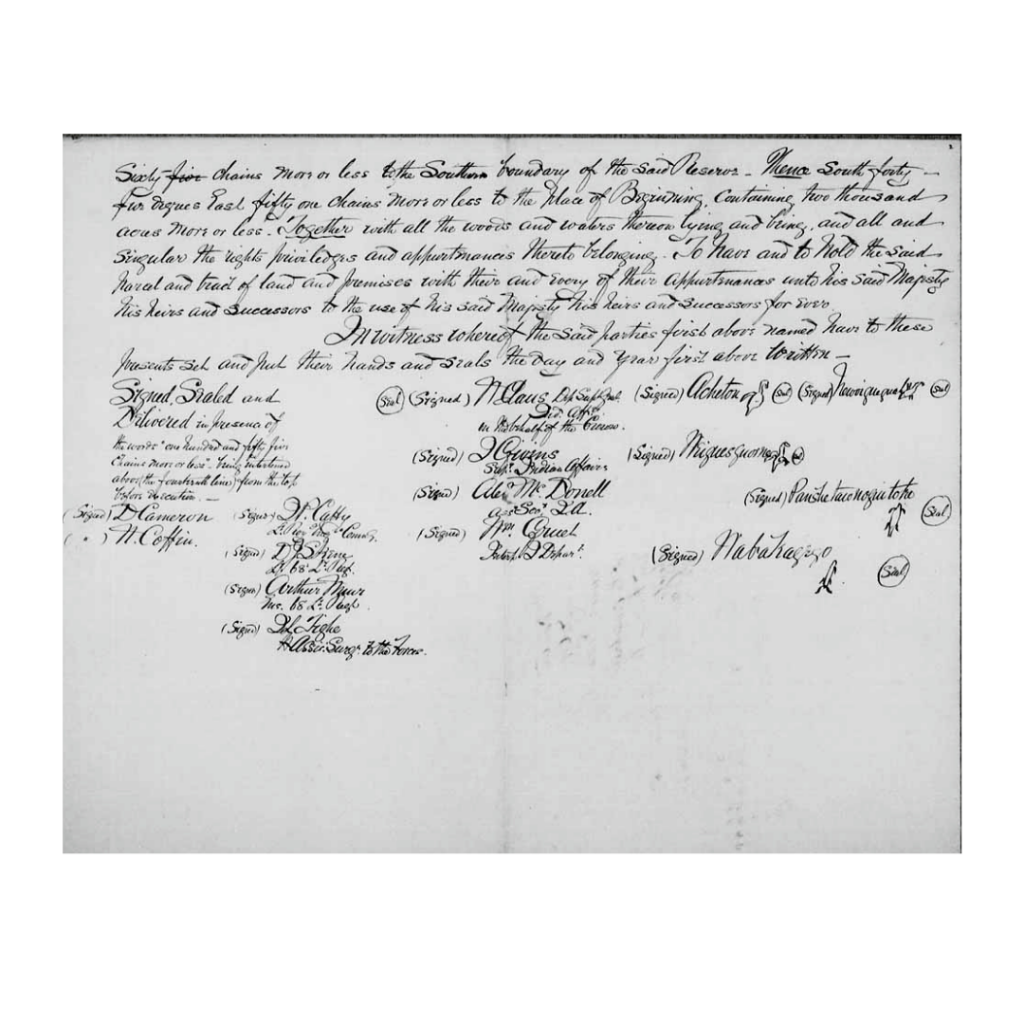 Sixty five chains more or less to the Southern boundary of the Said Reserve - Thence South forty -
five degrees East fifty one Chains more or less to the place of Beginning, Containing two thousand
acres more or less. Together with all the woods and waters thereon lying and being, and all and
Singular the rights priviledges and appurtenances thereto belonging. To Have and to Hold the Said
Parcel and tract of land and premises with their and Every of their appurtenances unto his Said Majesty
His heirs and Successors to the use of his Said Majesty his heirs and Successors for ever
In witness whereof the Said parties first above named have to these
presents set and put their hands and Seals the Day and Year first above Written -
Signed, Sealed and
Delivered in presence of
the words "one hundred and fifty five
Chains more or less" being interlined
above (the fourteenth line) from the top
before execution. -
(Signed) D Cameron
( " ) N. Coffin.
(Signed)
(Signed)
68 Lt. Regt.
(Signed) Arthur Muir
68 Lt. Regt.
(Signed) Tighe
Assis. Surgn to the Forces.
Seal (Signed) W. Claus Dep Supt Genl
Ind. Affs
in the behalf of the Crown.
(Signed) J Givins
Supt. Indian Affairs
(Signed) Alexr McDonell
Secy I.A.
(Signed) Wm. Gruet
Interpr I Depart.
(Signed) Acheton Seal (Signed) Seal
(Signed)
(Signed) Seal
(Signed) Wabakagego Seal